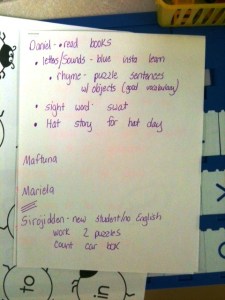 Daniel - • read books
• letters/Sounds - blue insta learn
• rhyme - puzzle sentences
w/ objects (good vocabulary)
• sight word swat
• Hat story for hat day
Maftuna
Mariela
Sirojidden - new student/no English
work 2 puzzles
count car box
to
in